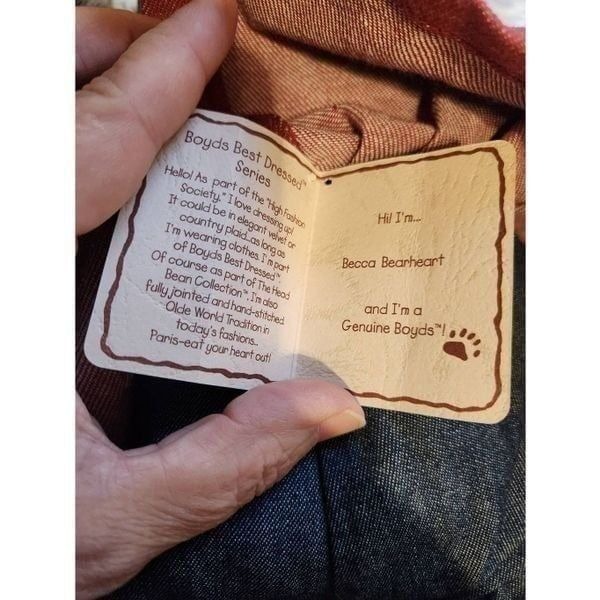 Boyds Best Dressed™
Series
Hello! As part of the "High Fashion
Society." I love dressing up!
It could be in elegant velvet or
country plaid...as long as
I'm wearing clothes. I'm part
of Boyds Best Dressed™.
Of course as part of The Head
Bean Collection™, I'm also
fully jointed and hand-stitched.
Olde World Tradition in
today's fashions...
Paris-eat your heart out!
Hi! I'm...
Becca Bearheart
and I'm a
Genuine Boyds™!